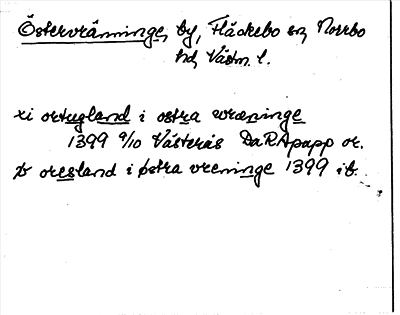 Östervränninge, by, Fläckebo sn, Norrbo
hd, Västm. l.
xi ortugland i ostra wræninge
1399 9/10 Västerås DaRApapp or.
þ oresland i østra vreninge 1399 ib.